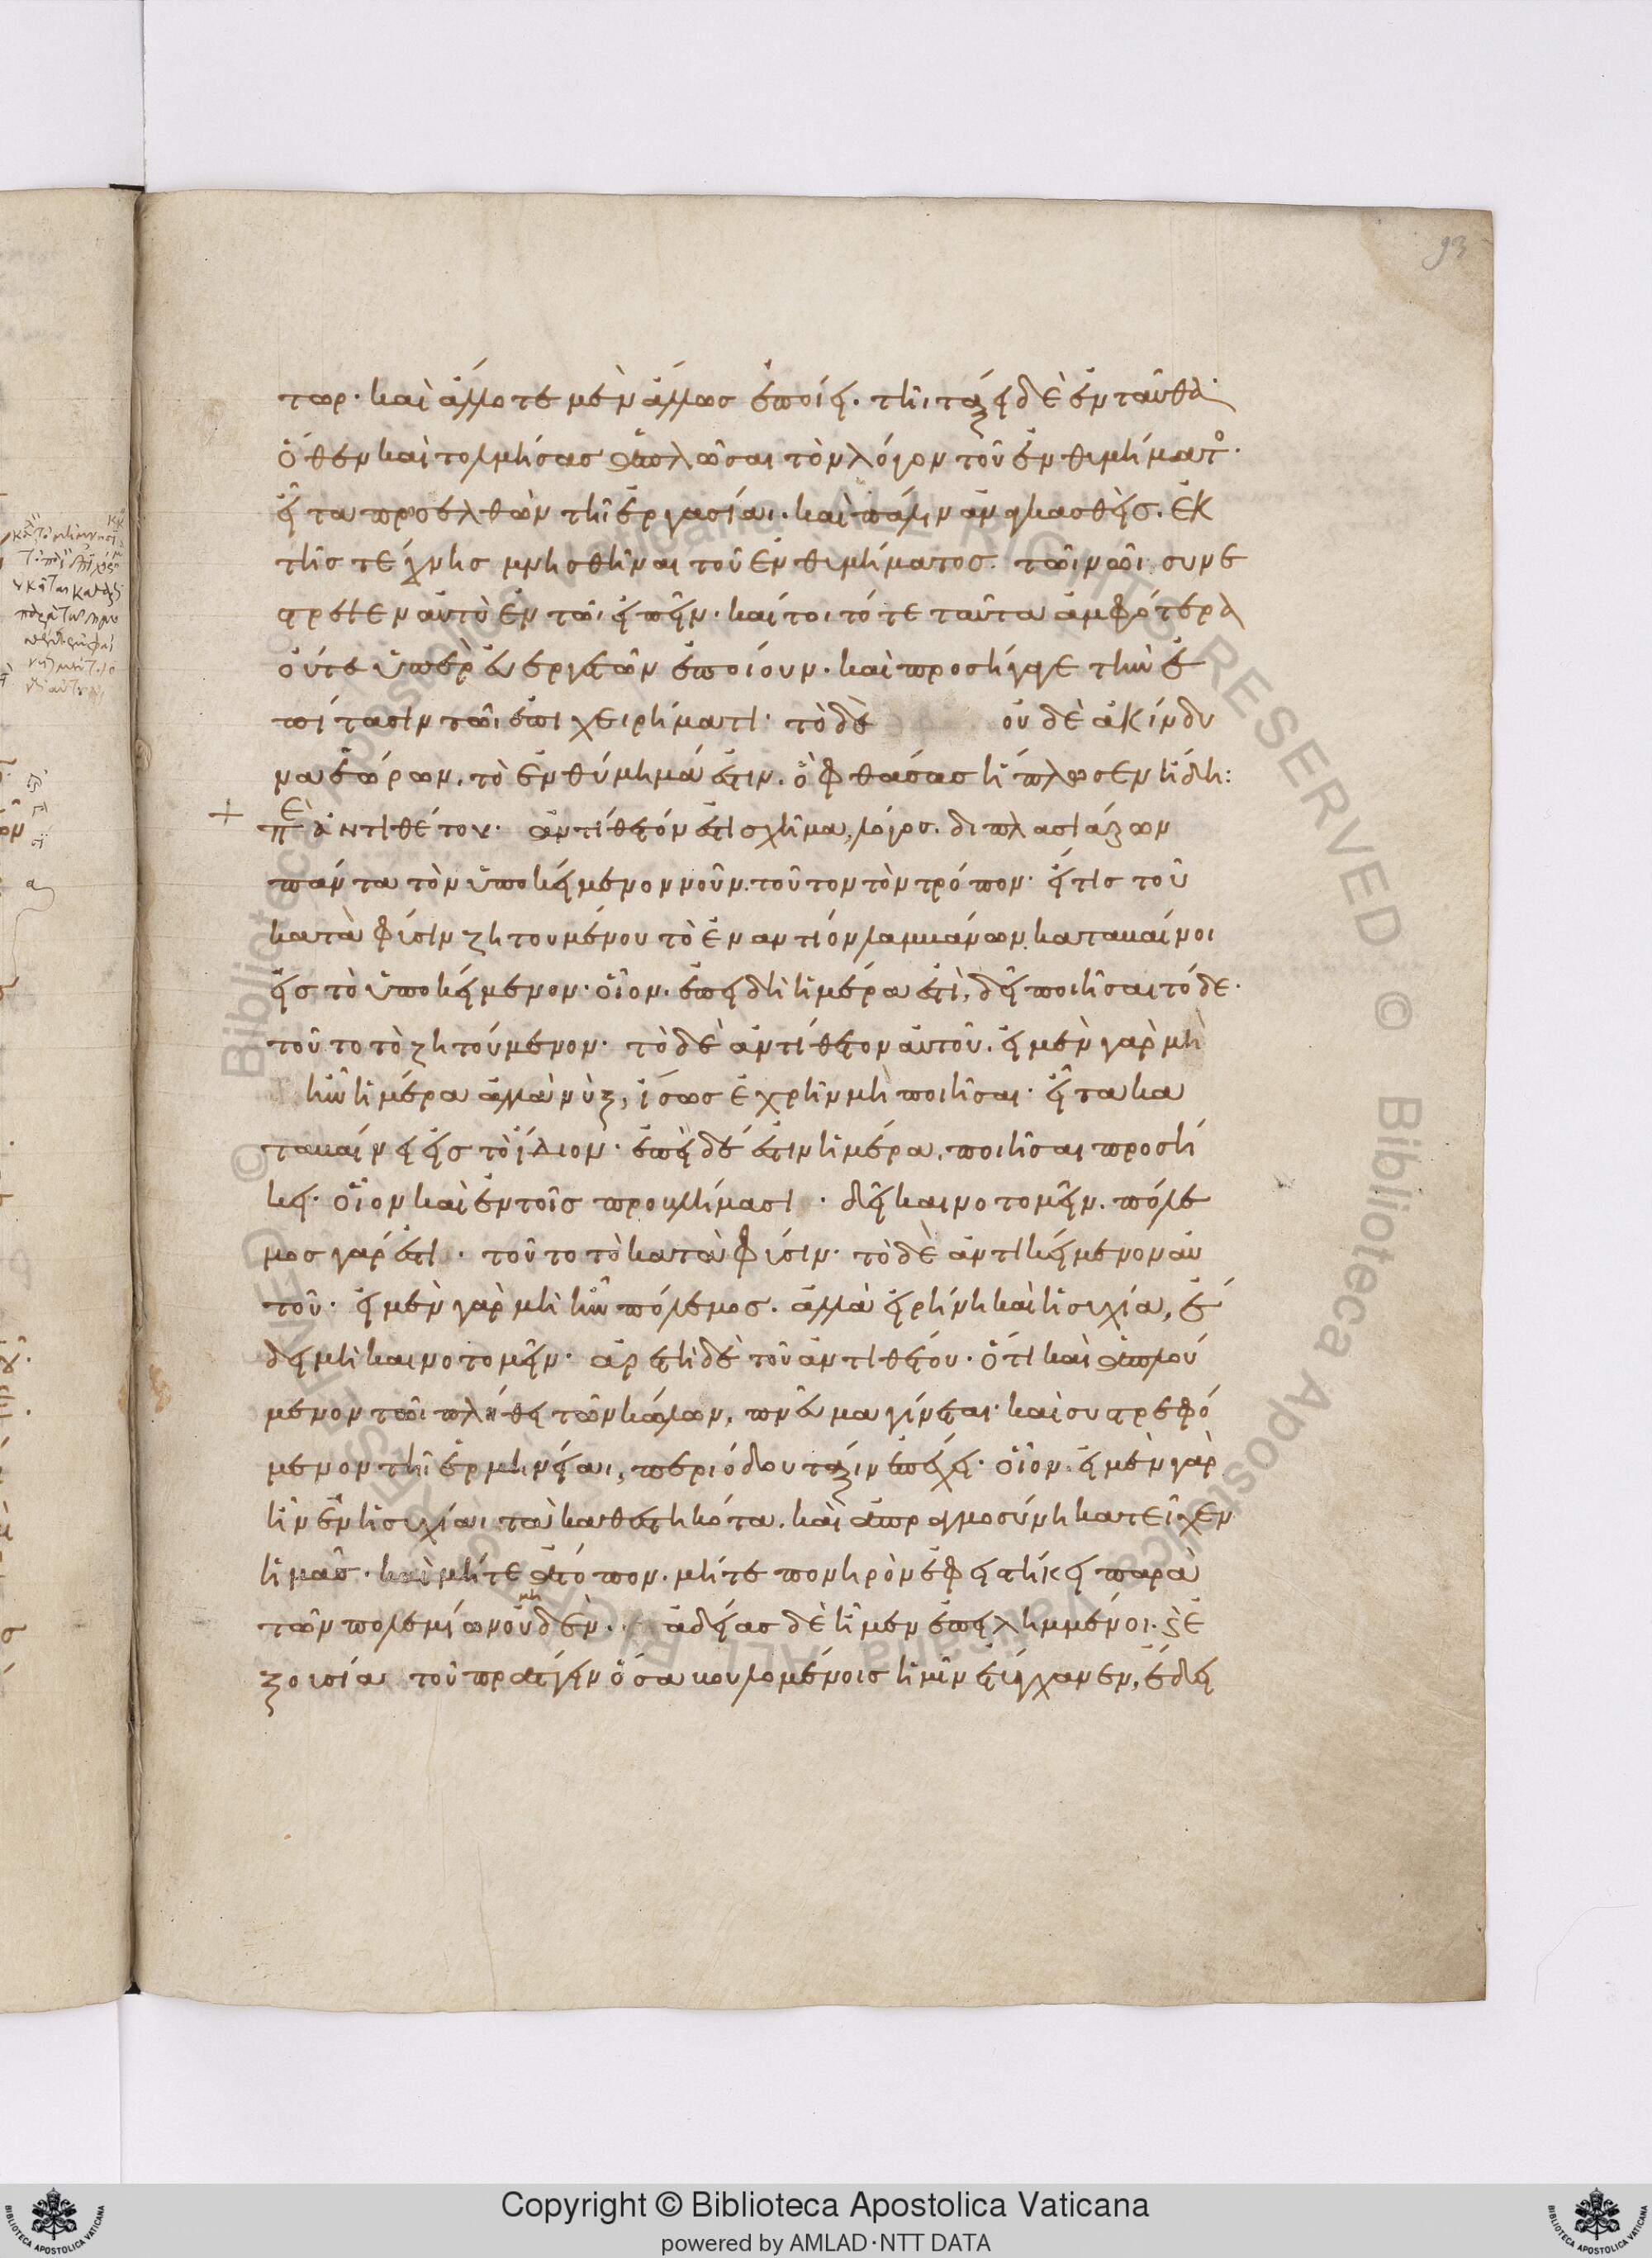 93
τωρ· καὶ ἄλλοτε μὲν ἄλλως ἐποίει. τῆι τάξει δὲ ἐνταῦθα·
ὅθεν καὶ τολμήσας ἁπλῶσαι τὸν λόγον τοῦ ἐνθυμήματο·
εἶτα προσελθὼν τῆι ἐργασίαι. καὶ πάλιν ἀναγκασθεὶς. ἐκ
τῆς τέχνης μνησθῆναι τοῦ ἐνθυμήματος. τῶι νῶι συνέ
στρεψεν αὐτὸ ἐν τῶι εἰπεῖν. καίτοι τότε ταῦτα ἀμφότερα
οὔτε ὑπὲρ εὐεργετῶν ἐποίουν. καὶ προσῆγε τὴν ἐ
πίτασιν τῶι ἐπιχειρήματι· τὸ δὲ οὐδὲ ἀκίνδυ
να εὑρων. τὸ ἐνθύμημά ἐστιν. ὃ φθάσας ἥπλωσεν ἤδη:
+ πε ἀντιθέτου· ἀντίθετόν ἐστι σχῆμα, λόγος. διπλασιάζων
πάντα τὸν ὑποκείμενον νοῦν. τοῦτον τὸν τρόπον· εἴ τις τοῦ
κατὰ φύσιν ζητουμένου τὸ ἐναντίον λαμβάνων καταβαίνοι
εἰς τὸ ὑποκείμενον· οἷον. ἐπειδὴ ἡμέρα ἐστὶ, δεῖ ποιῆσαι τόδε·
τοῦτο τὸ ζητούμενον· τὸ δὲ ἀντίθετον αὐτοῦ. εἰ μὲν γὰρ μὴ
ἦν ἡμέρα ἀλλὰ νὺξ, ἴσως ἐχρῆν μὴ ποιῆσαι· εἶτα κα
ταβαίνει εἰς τὸ ἴδιον· ἐπεὶ δέ ἐστιν ἡμέρα, ποιῆσαι προσή
κει· οἷον καὶ ἐν τοῖς προβλήμασι· δεῖ καινοτομεῖν. πόλε
μος γάρ ἐστι· τοῦτο τὸ κατὰ φύσιν· τὸ δὲ ἀντικείμενον αὐ
τοῦ· εἰ μὲν γὰρ μὴ ἦν πόλεμος. ἀλλὰ εἰρήνη καὶ ἡσυχία, ἔ
δει μὴ καινοτομεῖν· ἀρετὴ δὲ τοῦ ἀντιθέτου. ὅτι καὶ ἁπλού
μενον τῶι πλήθει τῶν κώλων, πνεῦμα γίνεται· καὶ συστρεφό
μενον τῆι ἑρμηνείαι, περιόδου τάξιν ἐπέχει· οἷον. εἰ μὲν γὰρ
ἦν ἐν ἡσυχίαι τὰ καθεστηκότα. καὶ ἀπραγμοσύνη κατεῖχεν
ἡμᾶς. καὶ μήτε ἄτοπον. μήτε πονηρὸν ἐφειστήκει παρὰ
τῶν πολεμίων οὐδέν. μη ἀδείας δὲ ἦμεν ἐπειλημμένοι. ϛ ἐ
ξουσία τοῦ πράττειν ὅσα βουλομένοις ἡμῖν ἐτύγχανεν, ἔδει
Copyright © Biblioteca Apostolica Vaticana
powered by AMLAD·NTT DATA